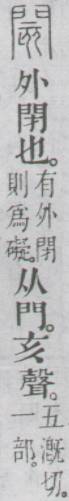 閡外閉也。有外閉則爲礙。从門。亥聲。五漑切。一部。